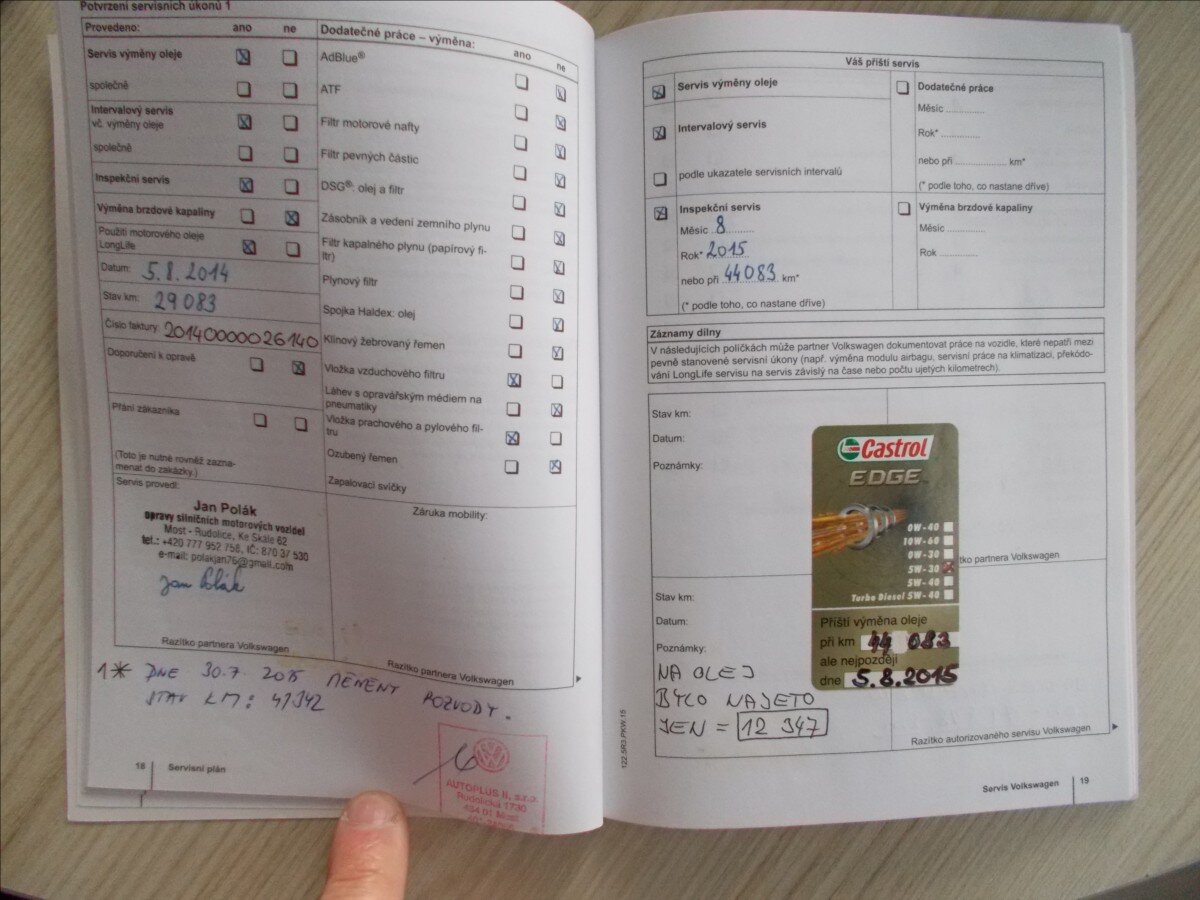 Potvrzení servisních úkonů 1
Provedeno: ano ne
Servis výměny oleje
společně
Intervalový servis
vč. výměny oleje
společně
Inspekční servis
Výměna brzdové kapaliny
Použití motorového oleje
LongLife
Datum: 5.8.2014
Stav km: 29 083
Číslo faktury: 20140000026140
Doporučení k opravě
Přání zákazníka
(Toto je nutné rovněž zazna-
menat do zakázky.)
Servis provedl:
Jan Polák
opravy silničních motorových vozidel
Most - Rudolice, Ke Skále 62
tel.: +420 777 952 758, IČ: 870 37 530
e-mail: polakjan76@gmail.com
Jan Polák
Razítko partnera Volkswagen
Dodatečné práce – výměna: ano ne
AdBlue®
ATF
Filtr motorové nafty
Filtr pevných částic
DSG®: olej a filtr
Zásobník a vedení zemního plynu
Filtr kapalného plynu (papírový fi-
ltr)
Plynový filtr
Spojka Haldex: olej
Klínový žebrovaný řemen
Vložka vzduchového filtru
Láhev s opravářským médiem na
pneumatiky
Vložka prachového a pylového fil-
tru
Ozubený řemen
Zapalovací svíčky
Záruka mobility:
Razítko partnera Volkswagen
1* DNE 30.7. 2015 MĚNĚNY ROZVODY.
STAV KM: 41342
AUTOPLUS II, s.r.o.
Rudolická 1730
434 01 Most
18 Servisní plán
Váš příští servis
Servis výměny oleje
Intervalový servis
podle ukazatele servisních intervalů
Inspekční servis
Měsíc 8
Rok* 2015
nebo při 44083 km*
(* podle toho, co nastane dříve)
Dodatečné práce
Měsíc
Rok*
nebo při km*
(* podle toho, co nastane dříve)
Výměna brzdové kapaliny
Měsíc
Rok
Záznamy dílny
V následujících políčkách může partner Volkswagen dokumentovat práce na vozidle, které nepatří mezi
pevně stanovené servisní úkony (např. výměna modulu airbagu, servisní práce na klimatizaci, překódo-
vání LongLife servisu na servis závislý na čase nebo počtu ujetých kilometrech).
Stav km:
Datum:
Poznámky:
Castrol
EDGE
0W-40
10W-60
0W-30
5W-30
5W-40
Turbo Diesel 5W-40
Příští výměna oleje
při km 44 083
ale nejpozději
dne 5.8.2015
tko partnera Volkswagen
Stav km:
Datum:
Poznámky:
NA OLEJ
BYLO NAJETO
JEN = 12 347
Razítko autorizovaného servisu Volkswagen
122.5R3.PKW.15
Servis Volkswagen 19